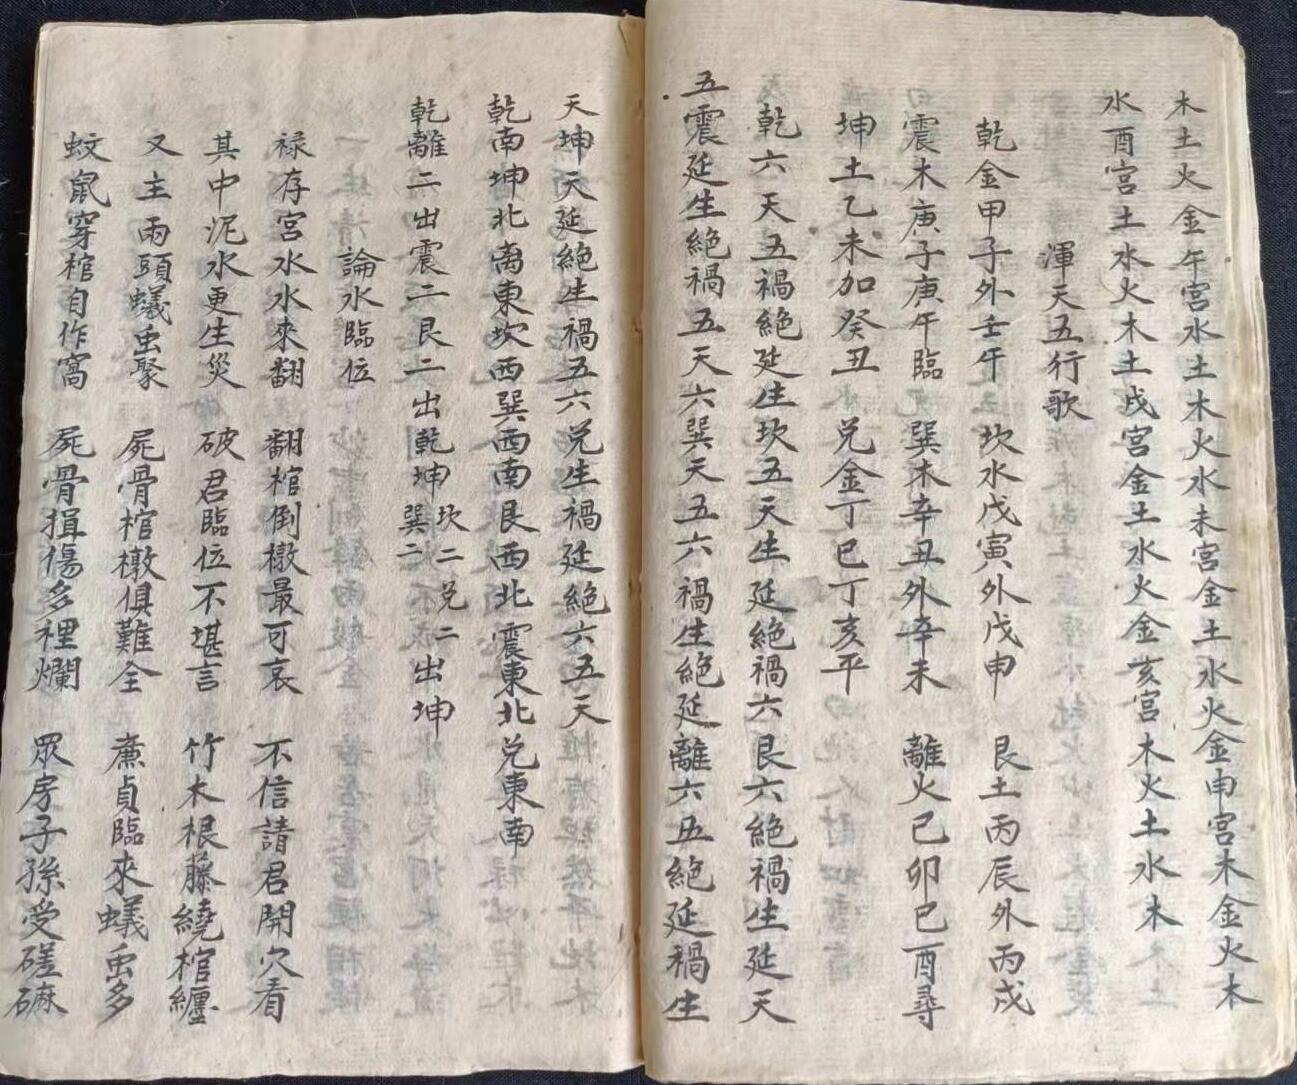 木土火金午宮水土木火水未宮金土水火金申宮木金火木
水酉宮土水火木土戌宮金土水火金亥宮木火土水木
渾天五行歌
乾金甲子外壬午 坎水戊寅外戊申 艮土丙辰外丙戌
震木庚子庚午臨 巽木辛丑外辛未 離火己卯己酉尋
坤土乙未加癸丑 兌金丁巳丁亥平
乾六天五禍絕延生坎五天生延絕禍六艮六絕禍生延天
五震延生絕禍五天六巽天五六禍生絕延離六五絕延禍生
天坤天延絕生禍五六兌生禍延絕六五天
乾南坤北离東坎西巽西南艮西北震東北兌東南
乾離二出震二艮二出乾坤坎二兌二出坤
巽二
論水臨位
禄存宮水水來翻 翻棺倒檄最可哀 不信請君開穴看
其中泥水更生災 破君臨位不堪言 竹木根藤繞棺纏
又主兩頭蟻虫聚 屍骨棺檄俱難全 亷貞臨來蟻虫多
蚊鼠穿棺自作窩 屍骨損傷多裡爛 眾房子孫受磋䃺